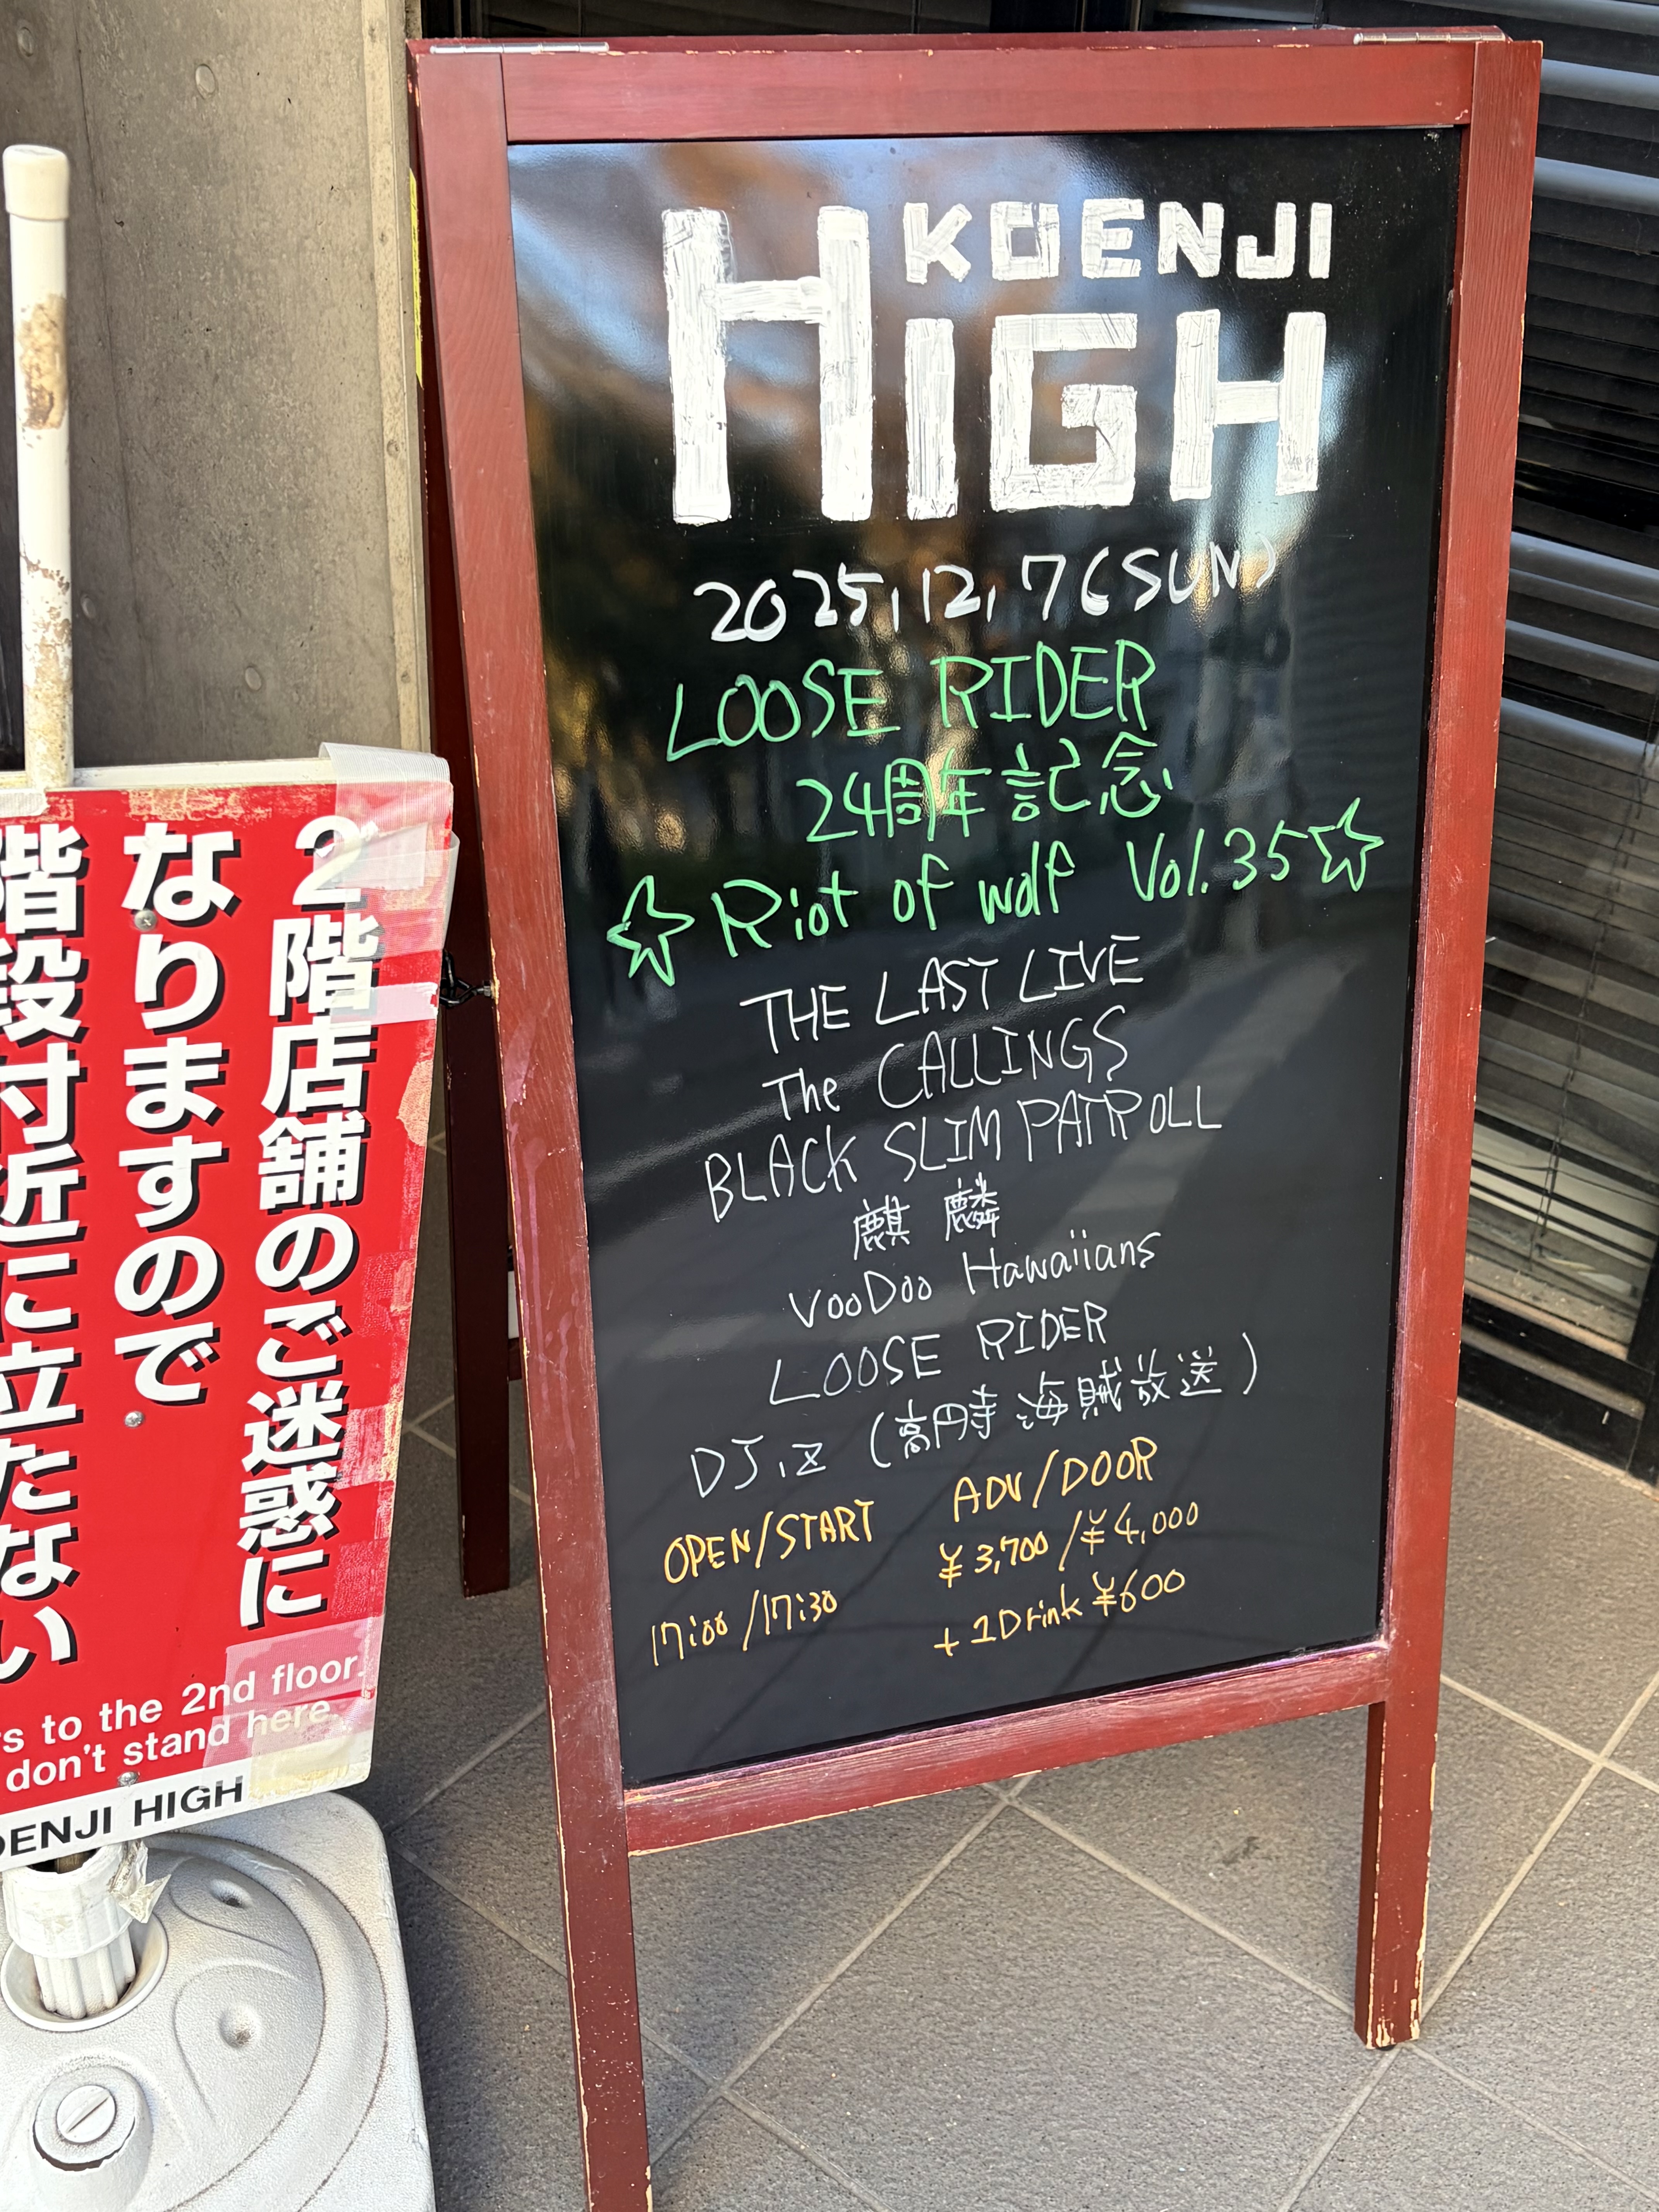 KOENJI
HIGH
2025,12,7(SUN)
LOOSE RIDER
24周年記念
☆Riot of wolf Vol.35☆
THE LAST LIVE
The CALLINGS
BLACK SLIM PATROLL
麒麟
VooDoo Hawaiians
LOOSE RIDER
DJ,z (高円寺海賊放送)
OPEN/START
17:00/17:30
ADV/DOOR
¥3,700/¥4,000
+1Drink ¥600
2階店舗のご迷惑に
なりますので
階段付近に立たない
to the 2nd floor.
don't stand here.
OENJI HIGH